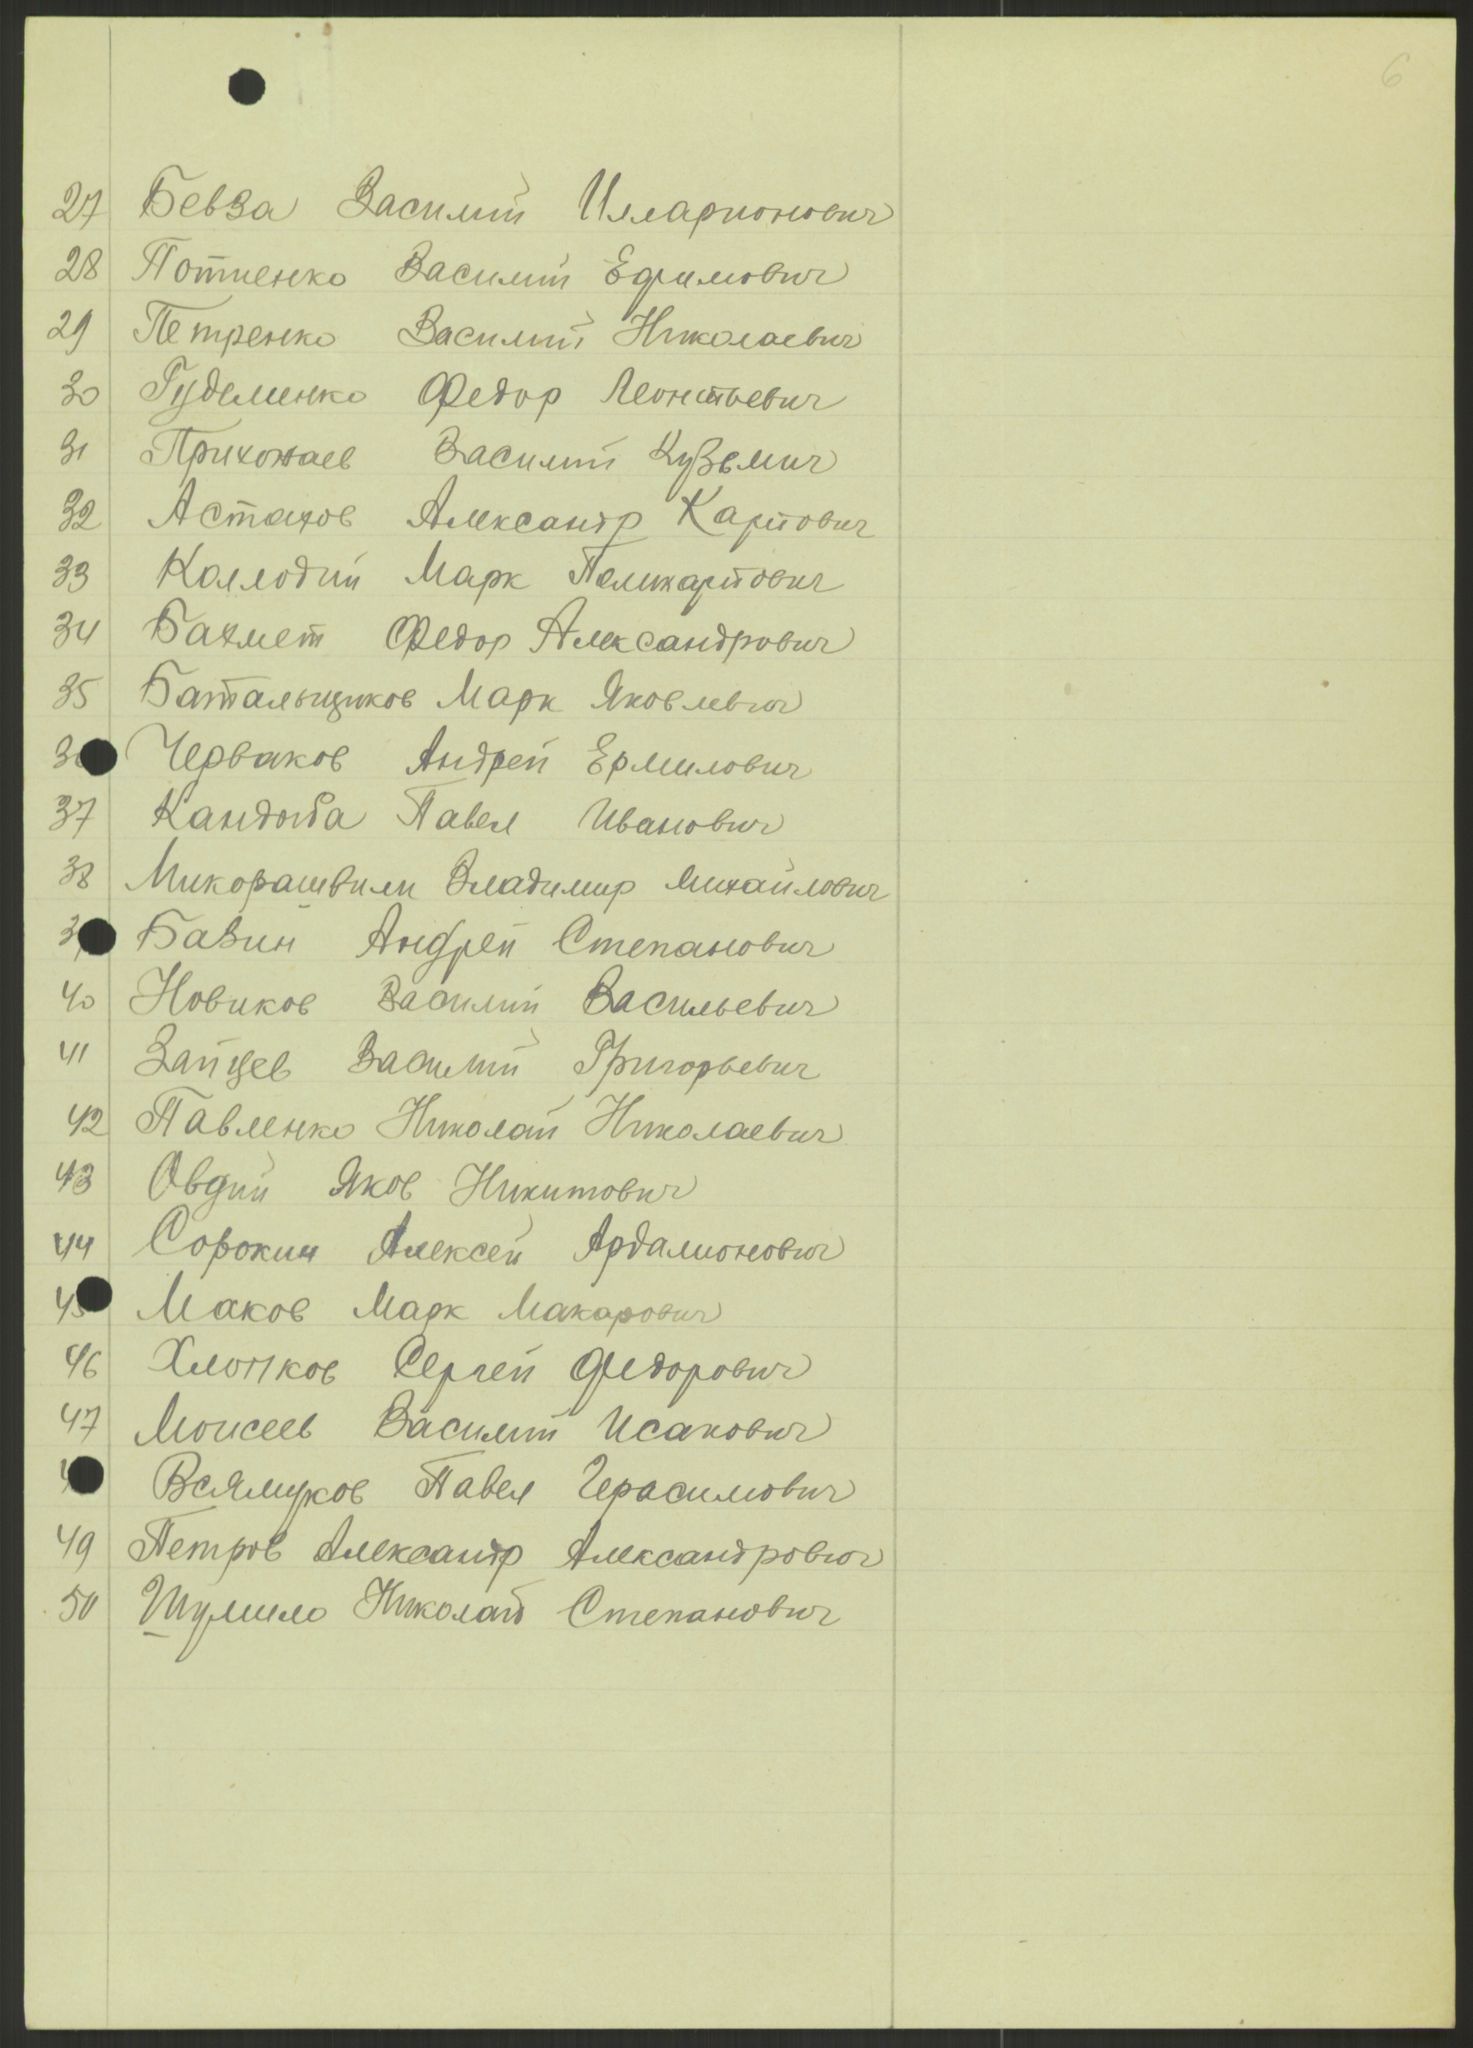 6
27 Бевза Василий Илларионович
28 Потиенко Василий Ефимович
29 Петренко Василий Николаевич
30 Гуделенко Федор Леонтьевич
31 Прихожаев Василий Кузьмич
32 Астахов Александр Карпович
33 Коллодий Марк Поликарпович
34 Бахмет Федор Александрович
35 Батальщиков Марк Яковлевич
36 Черваков Андрей Ермилович
37 Кандыба Павел Иванович
38 Микорашвили Владимир Михайлович
3 Бабин Андрей Степанович
40 Новиков Василий Васильевич
41 Зайцев Василий Григорьевич
42 Павленко Николай Николаевич
43 Овдий Яков Никитович
44 Сорокин Алексей Ардалионович
45 Маков Марк Макарович
46 Хлопков Сергей Федорович
47 Моисеев Василий Исакович
4 Павел Герасимович
49 Петров Александр Александрович
50 Шумило Николай Степанович